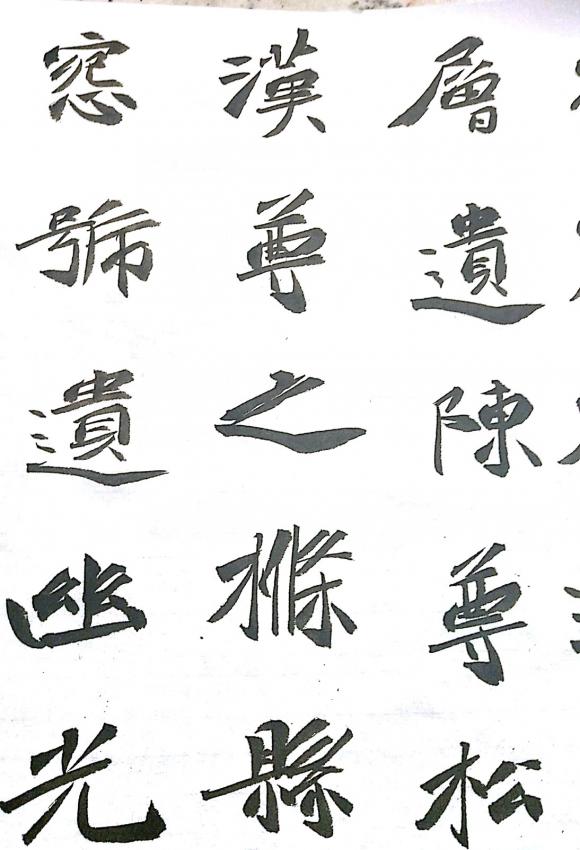 層遺陳尊松
漢尊之樤縣
窓號遺幽光